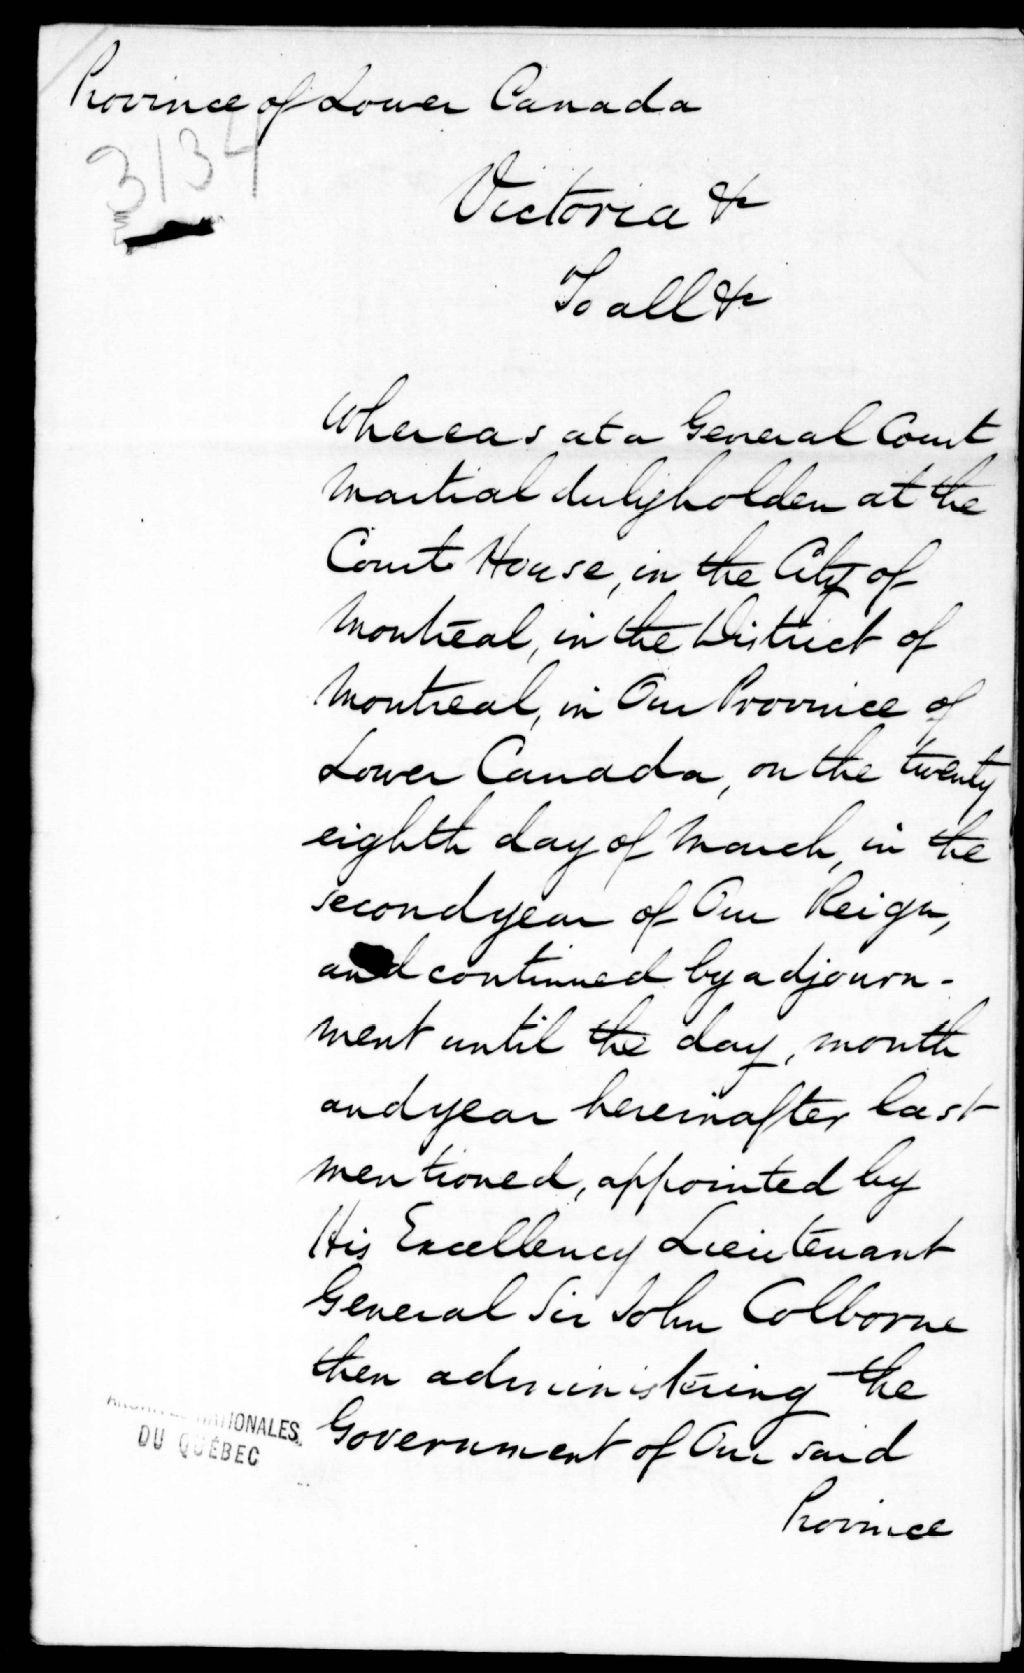 Province of Lower Canada
3134
Victoria &c
To all &c
Whereas at a General Court
Martial duly holden at the
Court House, in the City of
Montreal, in the District of
Montreal, in Our Province of
Lower Canada, on the twenty
eighth day of March, in the
second year of Our Reign,
and continued by adjourn-
ment until the day, month
and year hereinafter last
mentioned, appointed by
His Excellency Lieutenant
General Sir John Colborne
then administering the
Government of Our said
Province
ARCHIVES NATIONALES
DU QUÉBEC